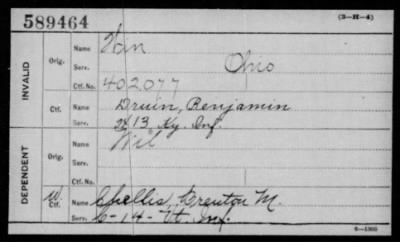 589464
(3-H-4)
INVALID
Orig.
Name
Serv.
Ohio
Ctf. No. 402077
Ctf.
Name Druin, Benjamin
Serv. 13 Ky. Inf.
DEPENDENT
Orig.
Name Wil
Serv.
Ctf. No.
W. Ctf.
Name Chellis, Trenton M.
Serv. C-14-Vt. Inf.